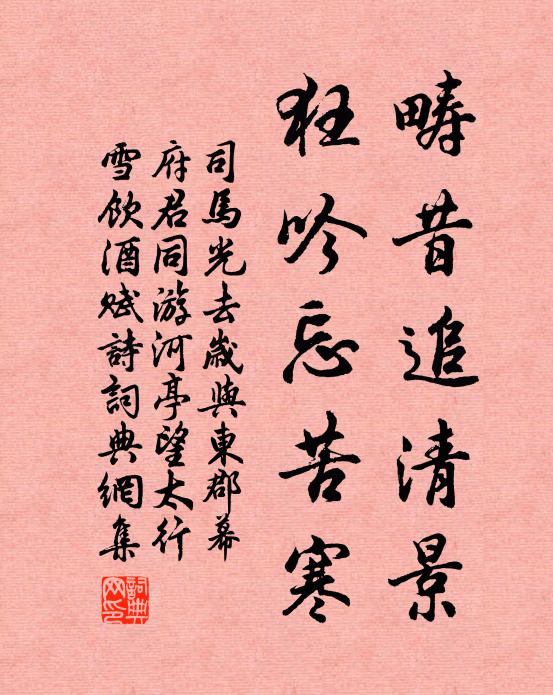 疇昔追清景
狂吟忘苦寒
司馬光去歲與東郡幕
府君同游河亭望太行
雪飲酒賦詩詞典網集
詞典網印